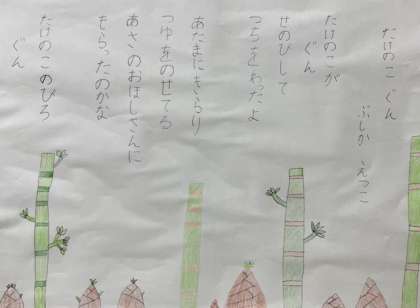 たけのこ ぐん
ぶしか えつこ
たけのこが
ぐん
せのびして
つちをわったよ
あたまにきらり
つゆをのせてる
あさのおほしさんに
もらったのかな
たけのこ のびろ
ぐん